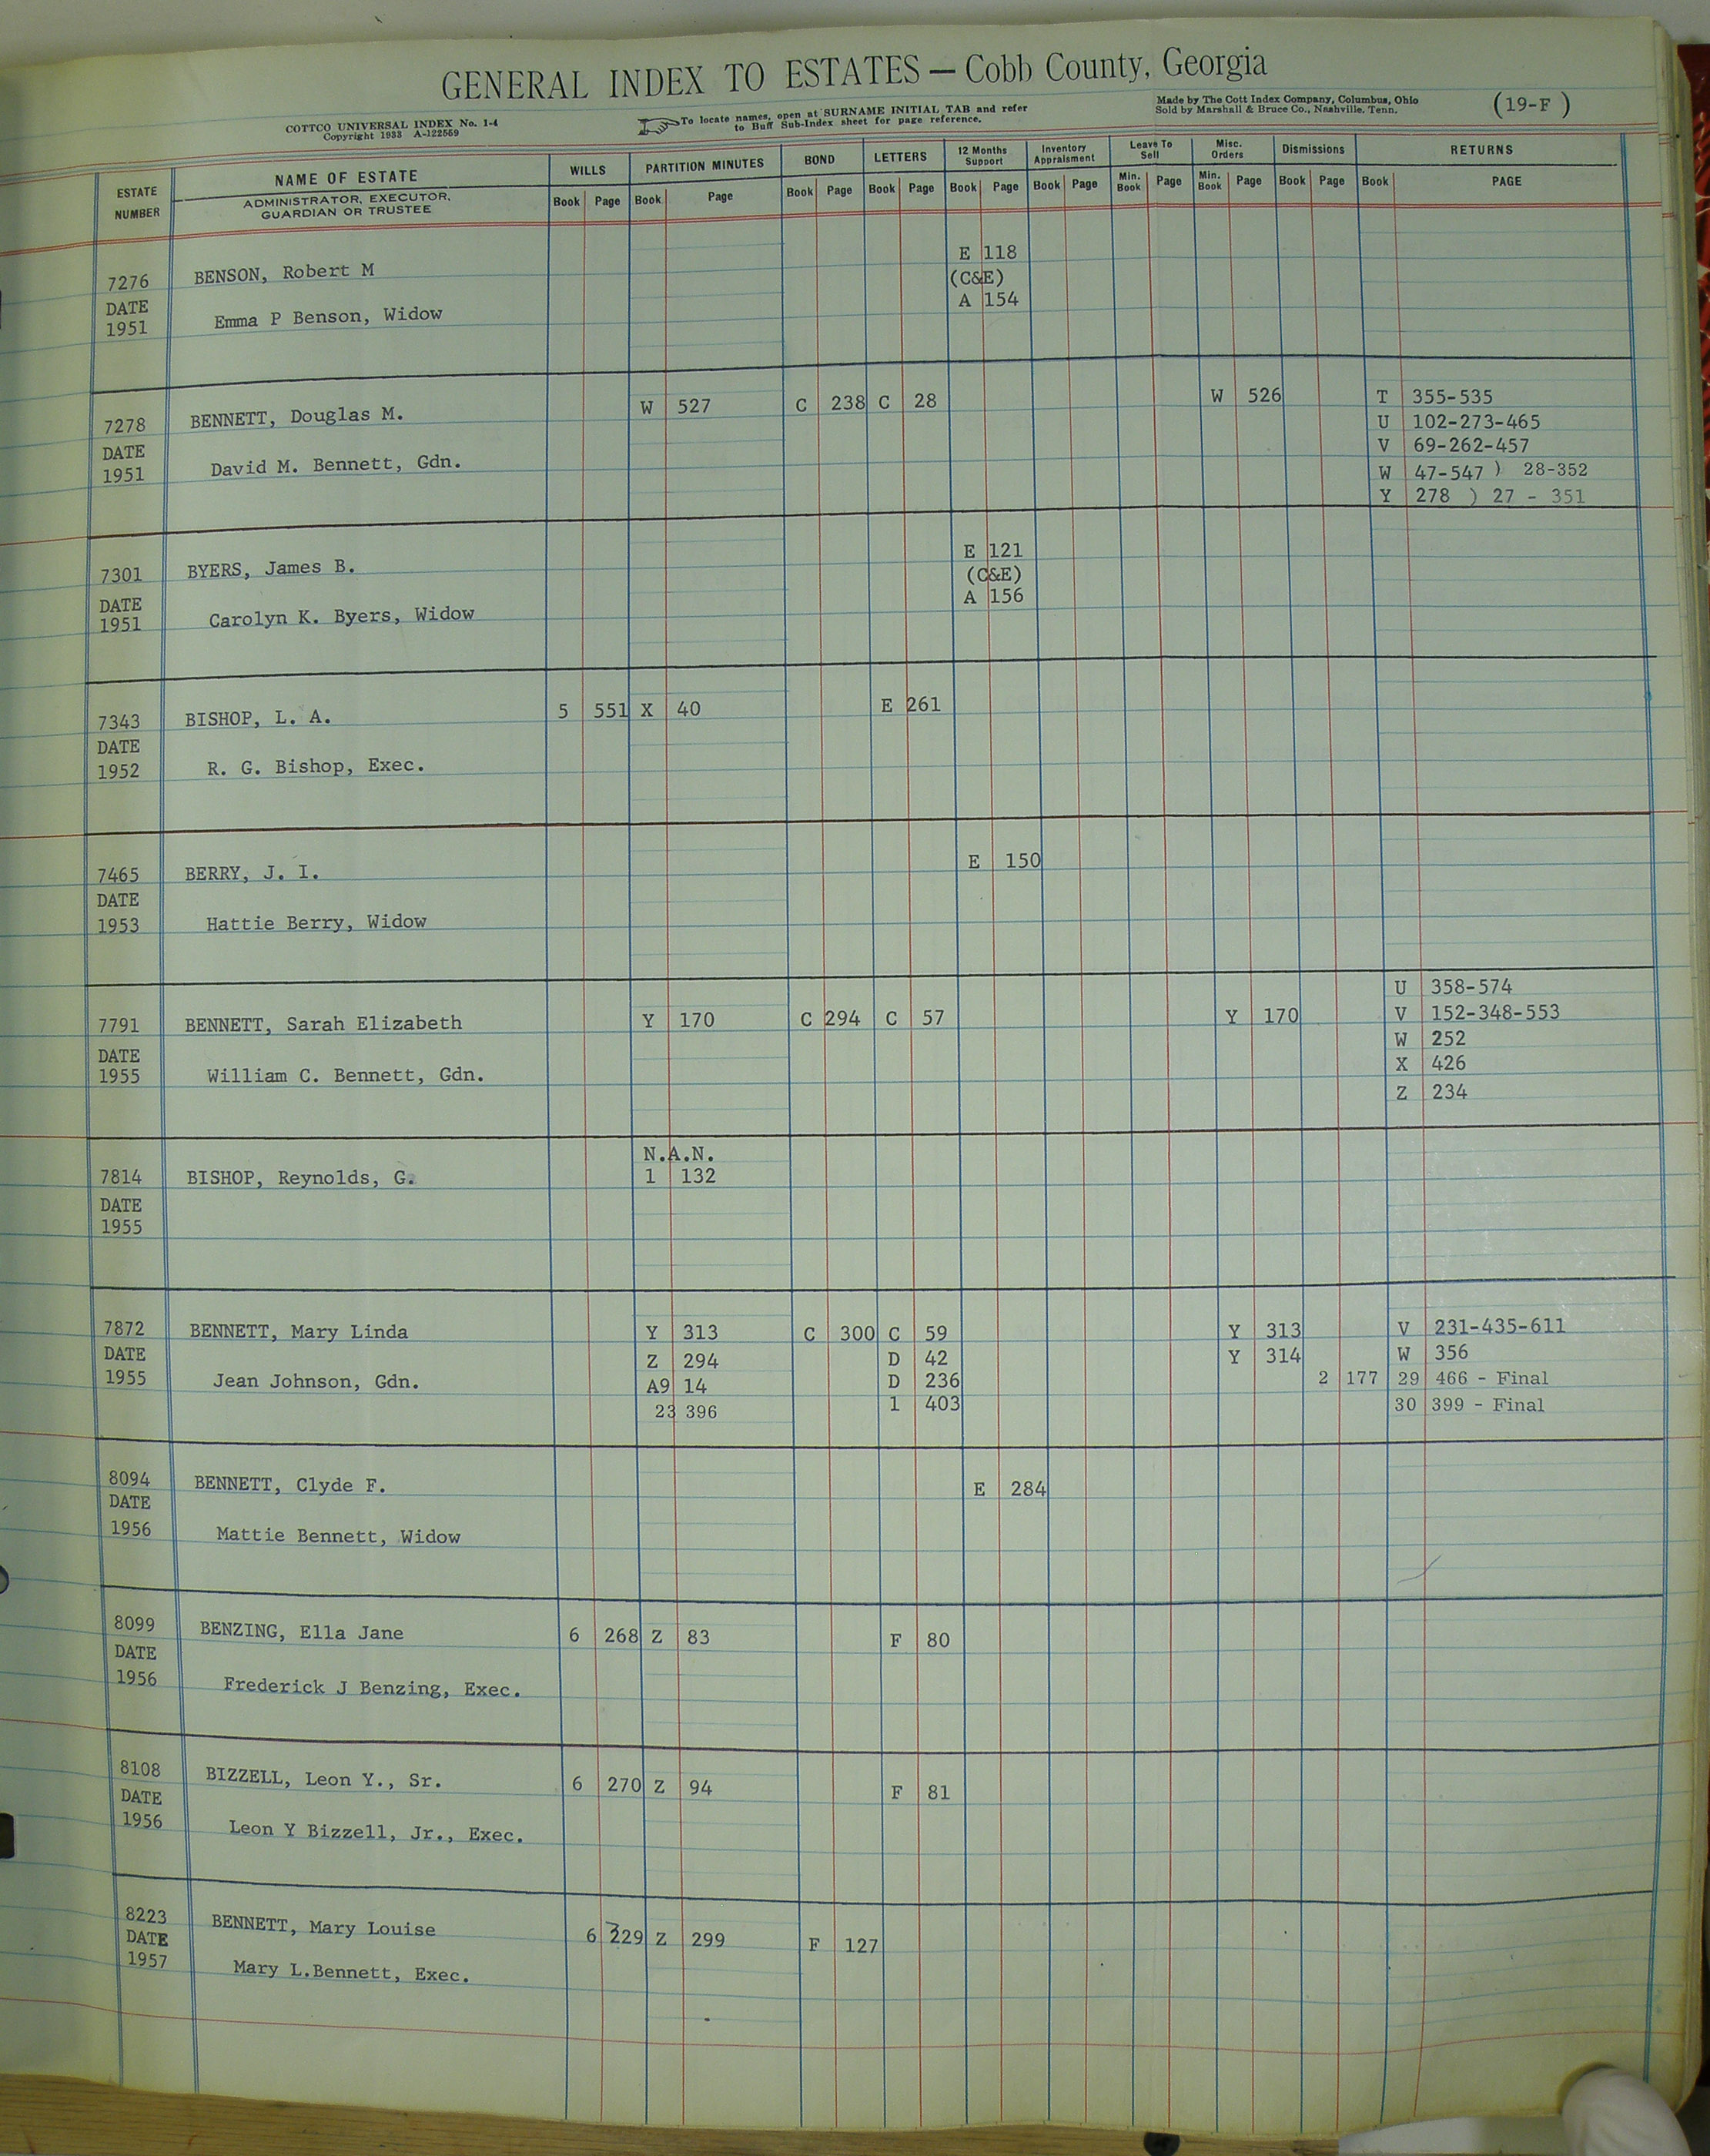 GENERAL INDEX TO ESTATES — Cobb County, Georgia
COTTCO UNIVERSAL INDEX No. 1-4
Copyright 1933 A-122559
To locate names, open at SURNAME INITIAL TAB and refer
to Buff Sub-Index sheet for page reference.
Made by The Cott Index Company, Columbus, Ohio
Sold by Marshall & Bruce Co., Nashville, Tenn.
(19-F)
ESTATE NUMBER
NAME OF ESTATE
ADMINISTRATOR, EXECUTOR,
GUARDIAN OR TRUSTEE
WILLS PARTITION MINUTES BOND LETTERS 12 Months Support Inventory Appraisment Leave To Sell Misc. Orders Dismissions RETURNS
Book Page Book Page Book Page Book Page Book Page Book Page Min. Book Page Min. Book Page Book Page Book PAGE
E 118
7276 BENSON, Robert M (C&E)
DATE A 154
1951 Emma P Benson, Widow
7278 BENNETT, Douglas M. W 527 C 238 C 28 W 526 T 355-535
U 102-273-465
DATE V 69-262-457
1951 David M. Bennett, Gdn. W 47-547 ) 28-352
Y 278 ) 27 - 351
E 121
7301 BYERS, James B. (C&E)
DATE A 156
1951 Carolyn K. Byers, Widow
7343 BISHOP, L. A. 5 551 X 40 E 261
DATE
1952 R. G. Bishop, Exec.
7465 BERRY, J. I. E 150
DATE
1953 Hattie Berry, Widow
U 358-574
7791 BENNETT, Sarah Elizabeth Y 170 C 294 C 57 Y 170 V 152-348-553
W 252
DATE X 426
1955 William C. Bennett, Gdn. Z 234
N.A.N.
7814 BISHOP, Reynolds, G. 1 132
DATE
1955
7872 BENNETT, Mary Linda Y 313 C 300 C 59 Y 313 V 231-435-611
DATE Z 294 D 42 Y 314 W 356
1955 Jean Johnson, Gdn. A9 14 D 236 2 177 29 466 - Final
23 396 1 403 30 399 - Final
8094 BENNETT, Clyde F. E 284
DATE
1956 Mattie Bennett, Widow
8099 BENZING, Ella Jane 6 268 Z 83 F 80
DATE
1956 Frederick J Benzing, Exec.
8108 BIZZELL, Leon Y., Sr. 6 270 Z 94 F 81
DATE
1956 Leon Y Bizzell, Jr., Exec.
8223 BENNETT, Mary Louise 6 329 Z 299 F 127
DATE
1957 Mary L.Bennett, Exec.